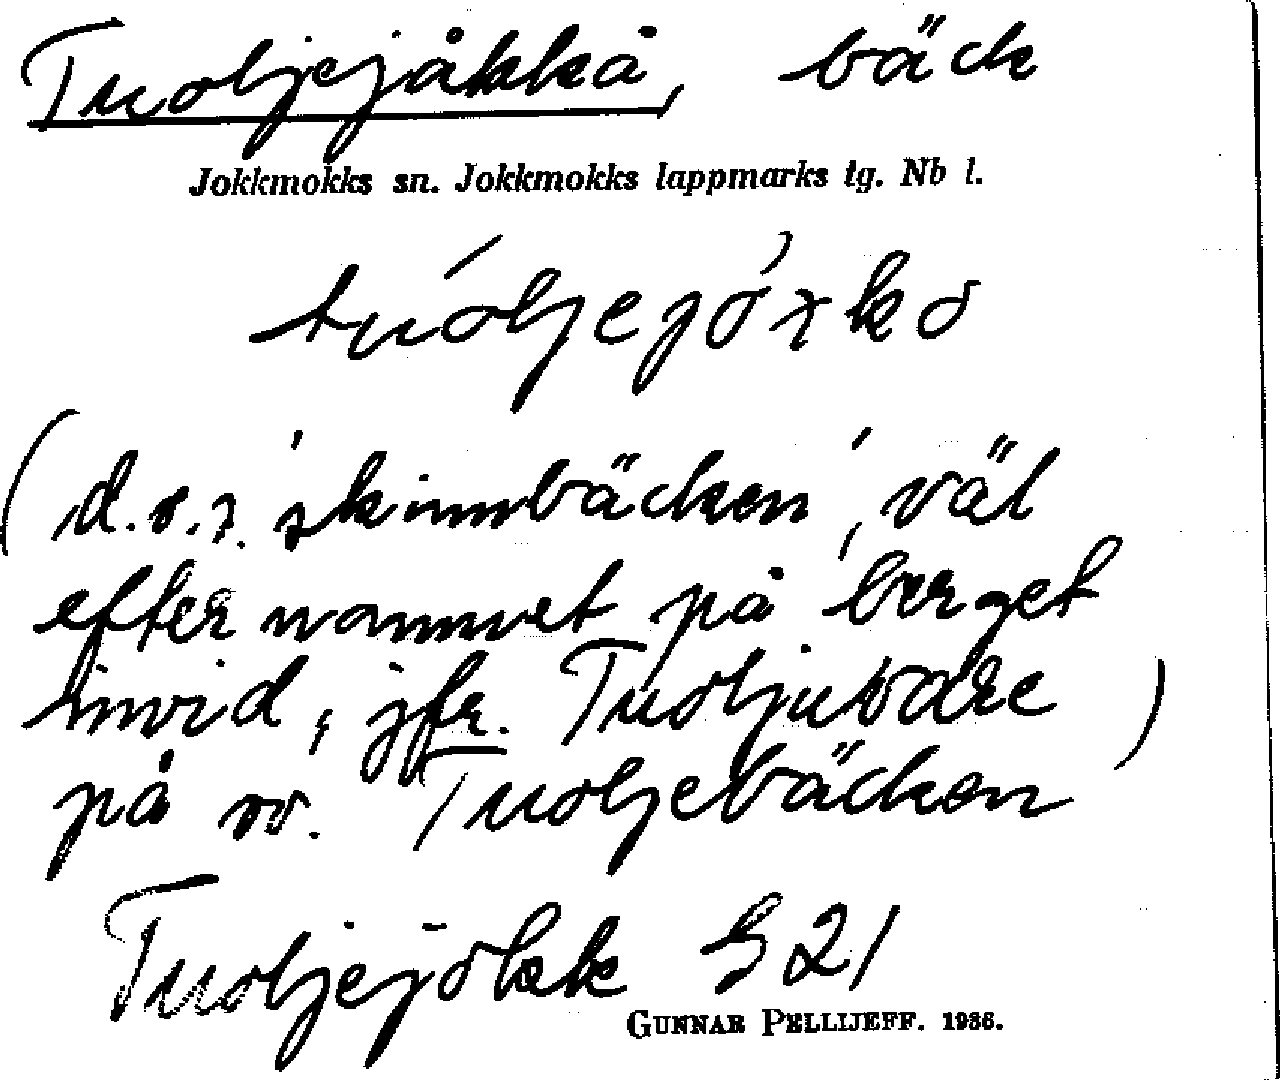 Tuoljejåkkå, bäck
Jokkmokks sn. Jokkmokks lappmarks tg. Nb l.
túoljejóχko
(d.v.s. 'skinnbäcken', väl
efter namnet på berget
invid, jfr. Tuoljuvare)
på sv. Tuoljebäcken
Tuoljejokk S 21
GUNNAR PELLIJEFF. 1936.